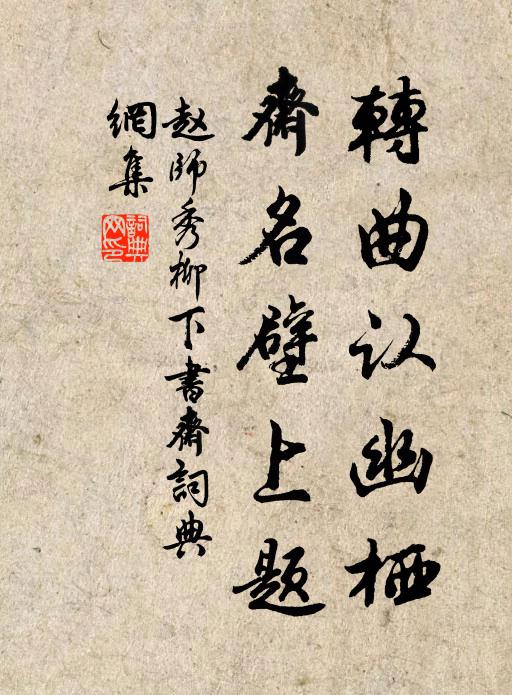 轉曲认幽栖
齋名壁上題
赵師秀柳下書齋詞典
網集
詞典
网印